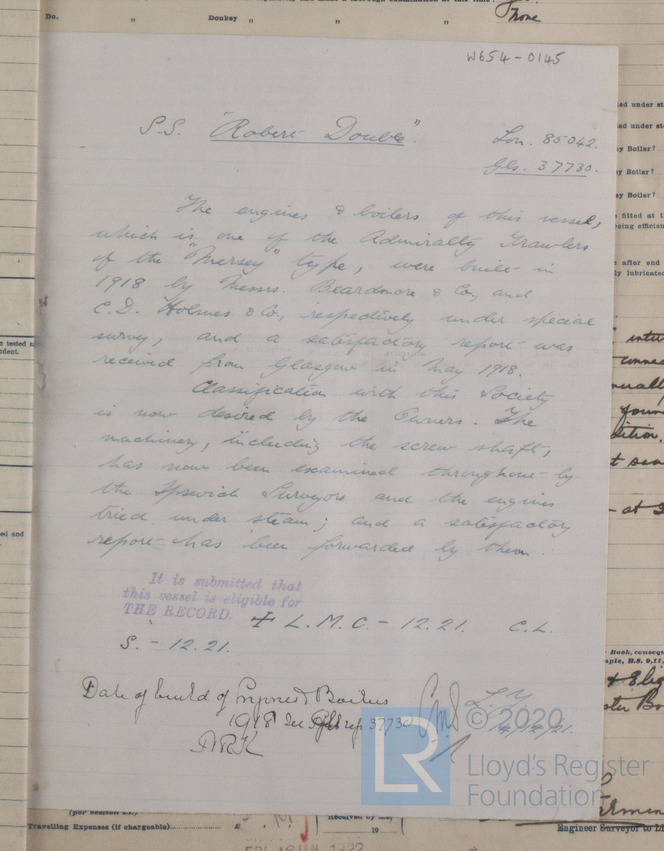 Do. " Donkey " " "
None
W654-0145
S.S. "Robert Double". Lon. 85042.
Gls. 37730.
The engines & boilers of this vessel,
which is one of the Admiralty Trawlers
of the "Mersey" type, were built in
1918 by Messrs. Beardmore & Co, and
C.D. Holmes & Co, respectively under special
survey, and a satisfactory report was
received from Glasgow in May 1918.
Classification with this Society
is now desired by the Owners. The
machinery, including the screw shaft,
has now been examined throughout by
the Ipswich Surveyors and the engines
tried under steam; and a satisfactory
report has been forwarded by them.
It is submitted that
this vessel is eligible for
THE RECORD. + L.M.C. - 12.21. C.L.
S. - 12.21.
Date of build of Engines & Boilers
1918 See Gls rep 37730
ARK
14/12/21.
© 2020
LR
Lloyd's Register
Foundation
Travelling Expenses (if chargeable) £ Received by me,
19
Engineer Surveyor to
ed under st
ed under st
y Boiler?
y Boiler?
y Boiler?
fitted at t
being efficien
after end
ly lubricated
n tested
ndent.
ed and
Book,